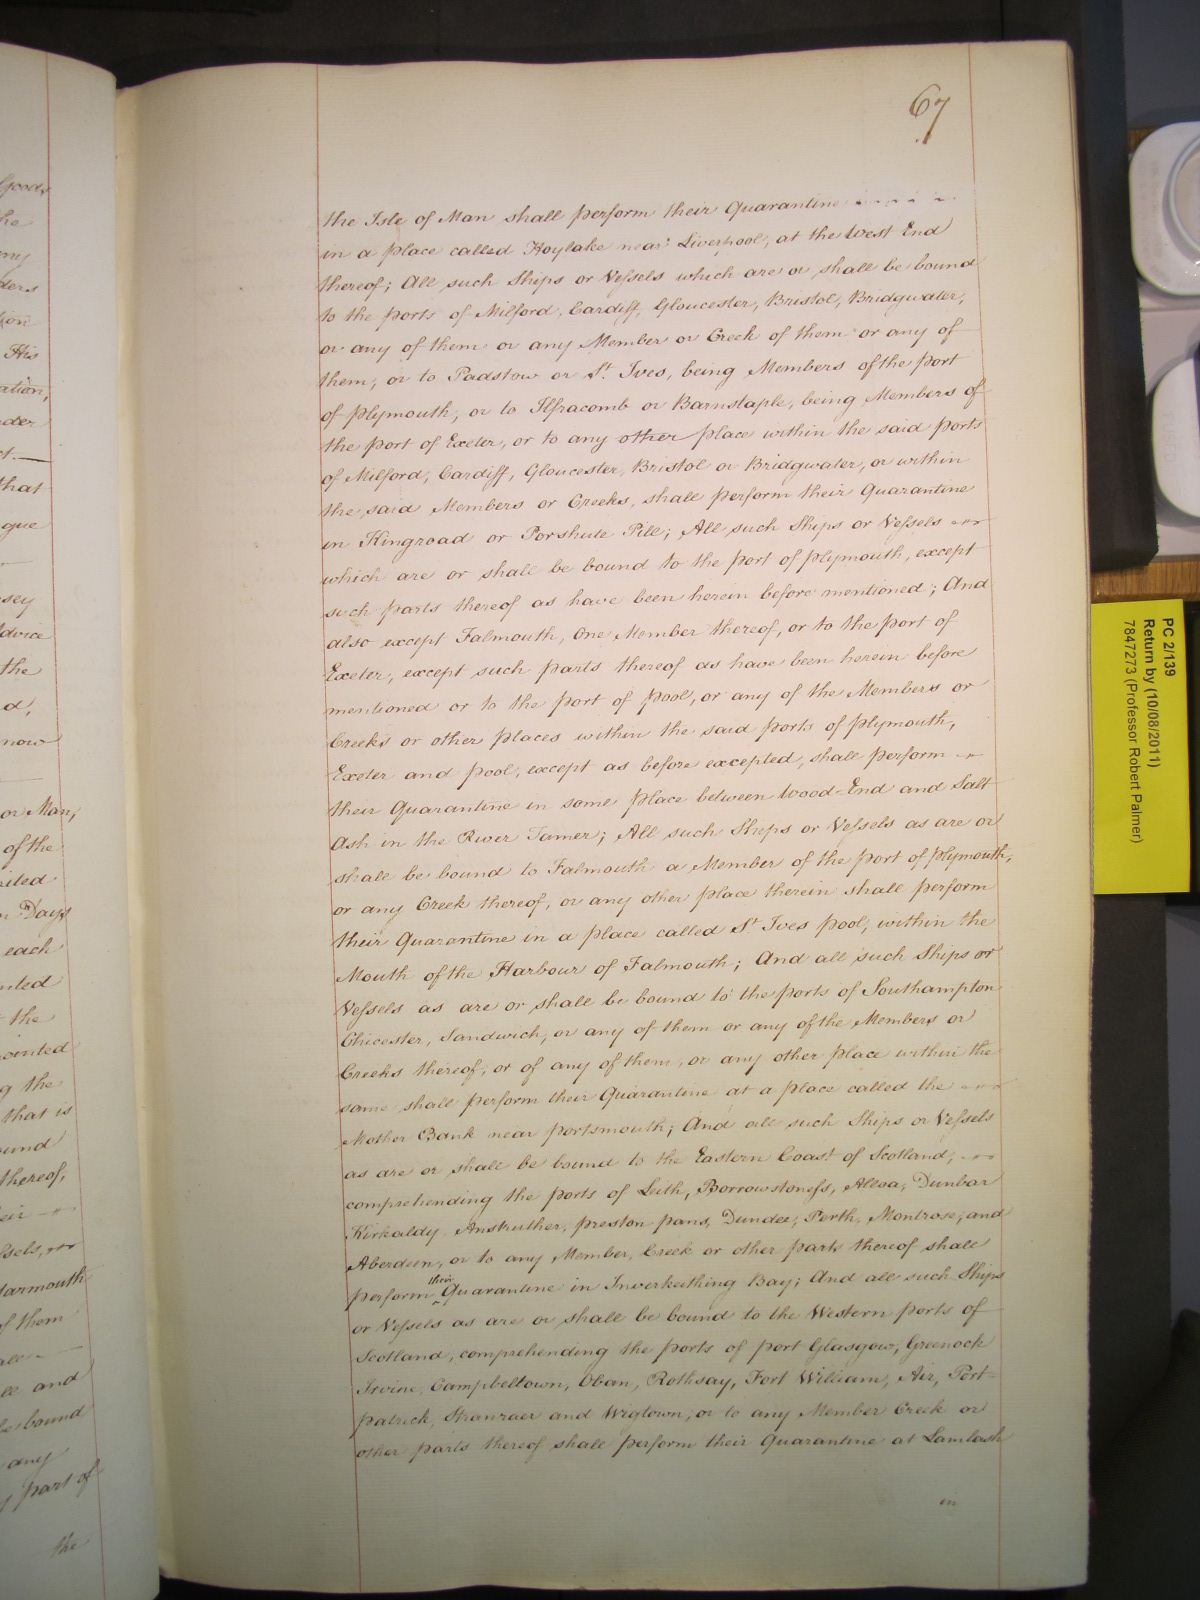 67
the Isle of Man shall perform their Quarantine
in a place called Hoylake near Liverpool, at the West End
thereof; All such Ships or Vessels which are or shall be bound
to the ports of Milford, Cardiff, Gloucester, Bristol, Bridgwater,
or any of them or any Member or Creek of them or any of
them, or to Padstow or St. Ives, being Members of the port
of plymouth, or to Ilfracomb or Barnstaple, being Members of
the port of Exeter, or to any other place within the said ports
of Milford, Cardiff, Gloucester, Bristol or Bridgwater, or within
the said Members or Creeks, shall perform their Quarantine
in Kingroad or Porshute Pill; All such Ships or Vessels
which are or shall be bound to the port of plymouth, except
such parts thereof as have been herein before mentioned; And
also except Falmouth, One Member thereof, or to the port of
Exeter, except such parts thereof as have been herein before
mentioned or to the port of pool, or any of the Members or
Creeks or other places within the said ports of plymouth,
Exeter and pool, except as before excepted, shall perform
their Quarantine in some place between Wood-End and Salt
Ash in the River Tamer; All such Ships or Vessels as are or
shall be bound to Falmouth a Member of the port of plymouth,
or any Creek thereof, or any other place therein shall perform
their Quarantine in a place called St Ives pool, within the
Mouth of the Harbour of Falmouth; And all such Ships or
Vessels as are or shall be bound to the ports of Southampton
Chicester, Sandwich, or any of them or any of the Members or
Creeks thereof, or of any of them, or any other place within the
same shall perform their Quarantine at a place called the
Mother Bank near portsmouth; And all such Ships or Vessels
as are or shall be bound to the Eastern Coast of Scotland,
comprehending the ports of Leith, Borrowstoness, Alloa, Dunbar
Kirkaldy Anstruther, preston pans, Dundee, Perth, Montrose, and
Aberdeen, or to any Member, Creek or other parts thereof shall
perform their Quarantine in Inverkeithing Bay; And all such Ships
or Vessels as are or shall be bound to the Western ports of
Scotland, comprehending the ports of port Glasgow, Greenock
Irvine, Campbeltown, Oban, Rothsay, Fort William, Air, Port=
patrick, Stranraer and Wigtown, or to any Member Creek or
other parts thereof shall perform their Quarantine at Lamlash
in
PC 2/139
Return by (10/08/2011)
7847273 (Professor Robert Palmer)
Goods
the
ders
His
ation,
der
that
gue
sey
Advice
the
d,
now
or Man,
of the
Days
each
the
ointed
g the
that is
ound
thereof,
Yarmouth
of them
and
be bound
any
part of
the